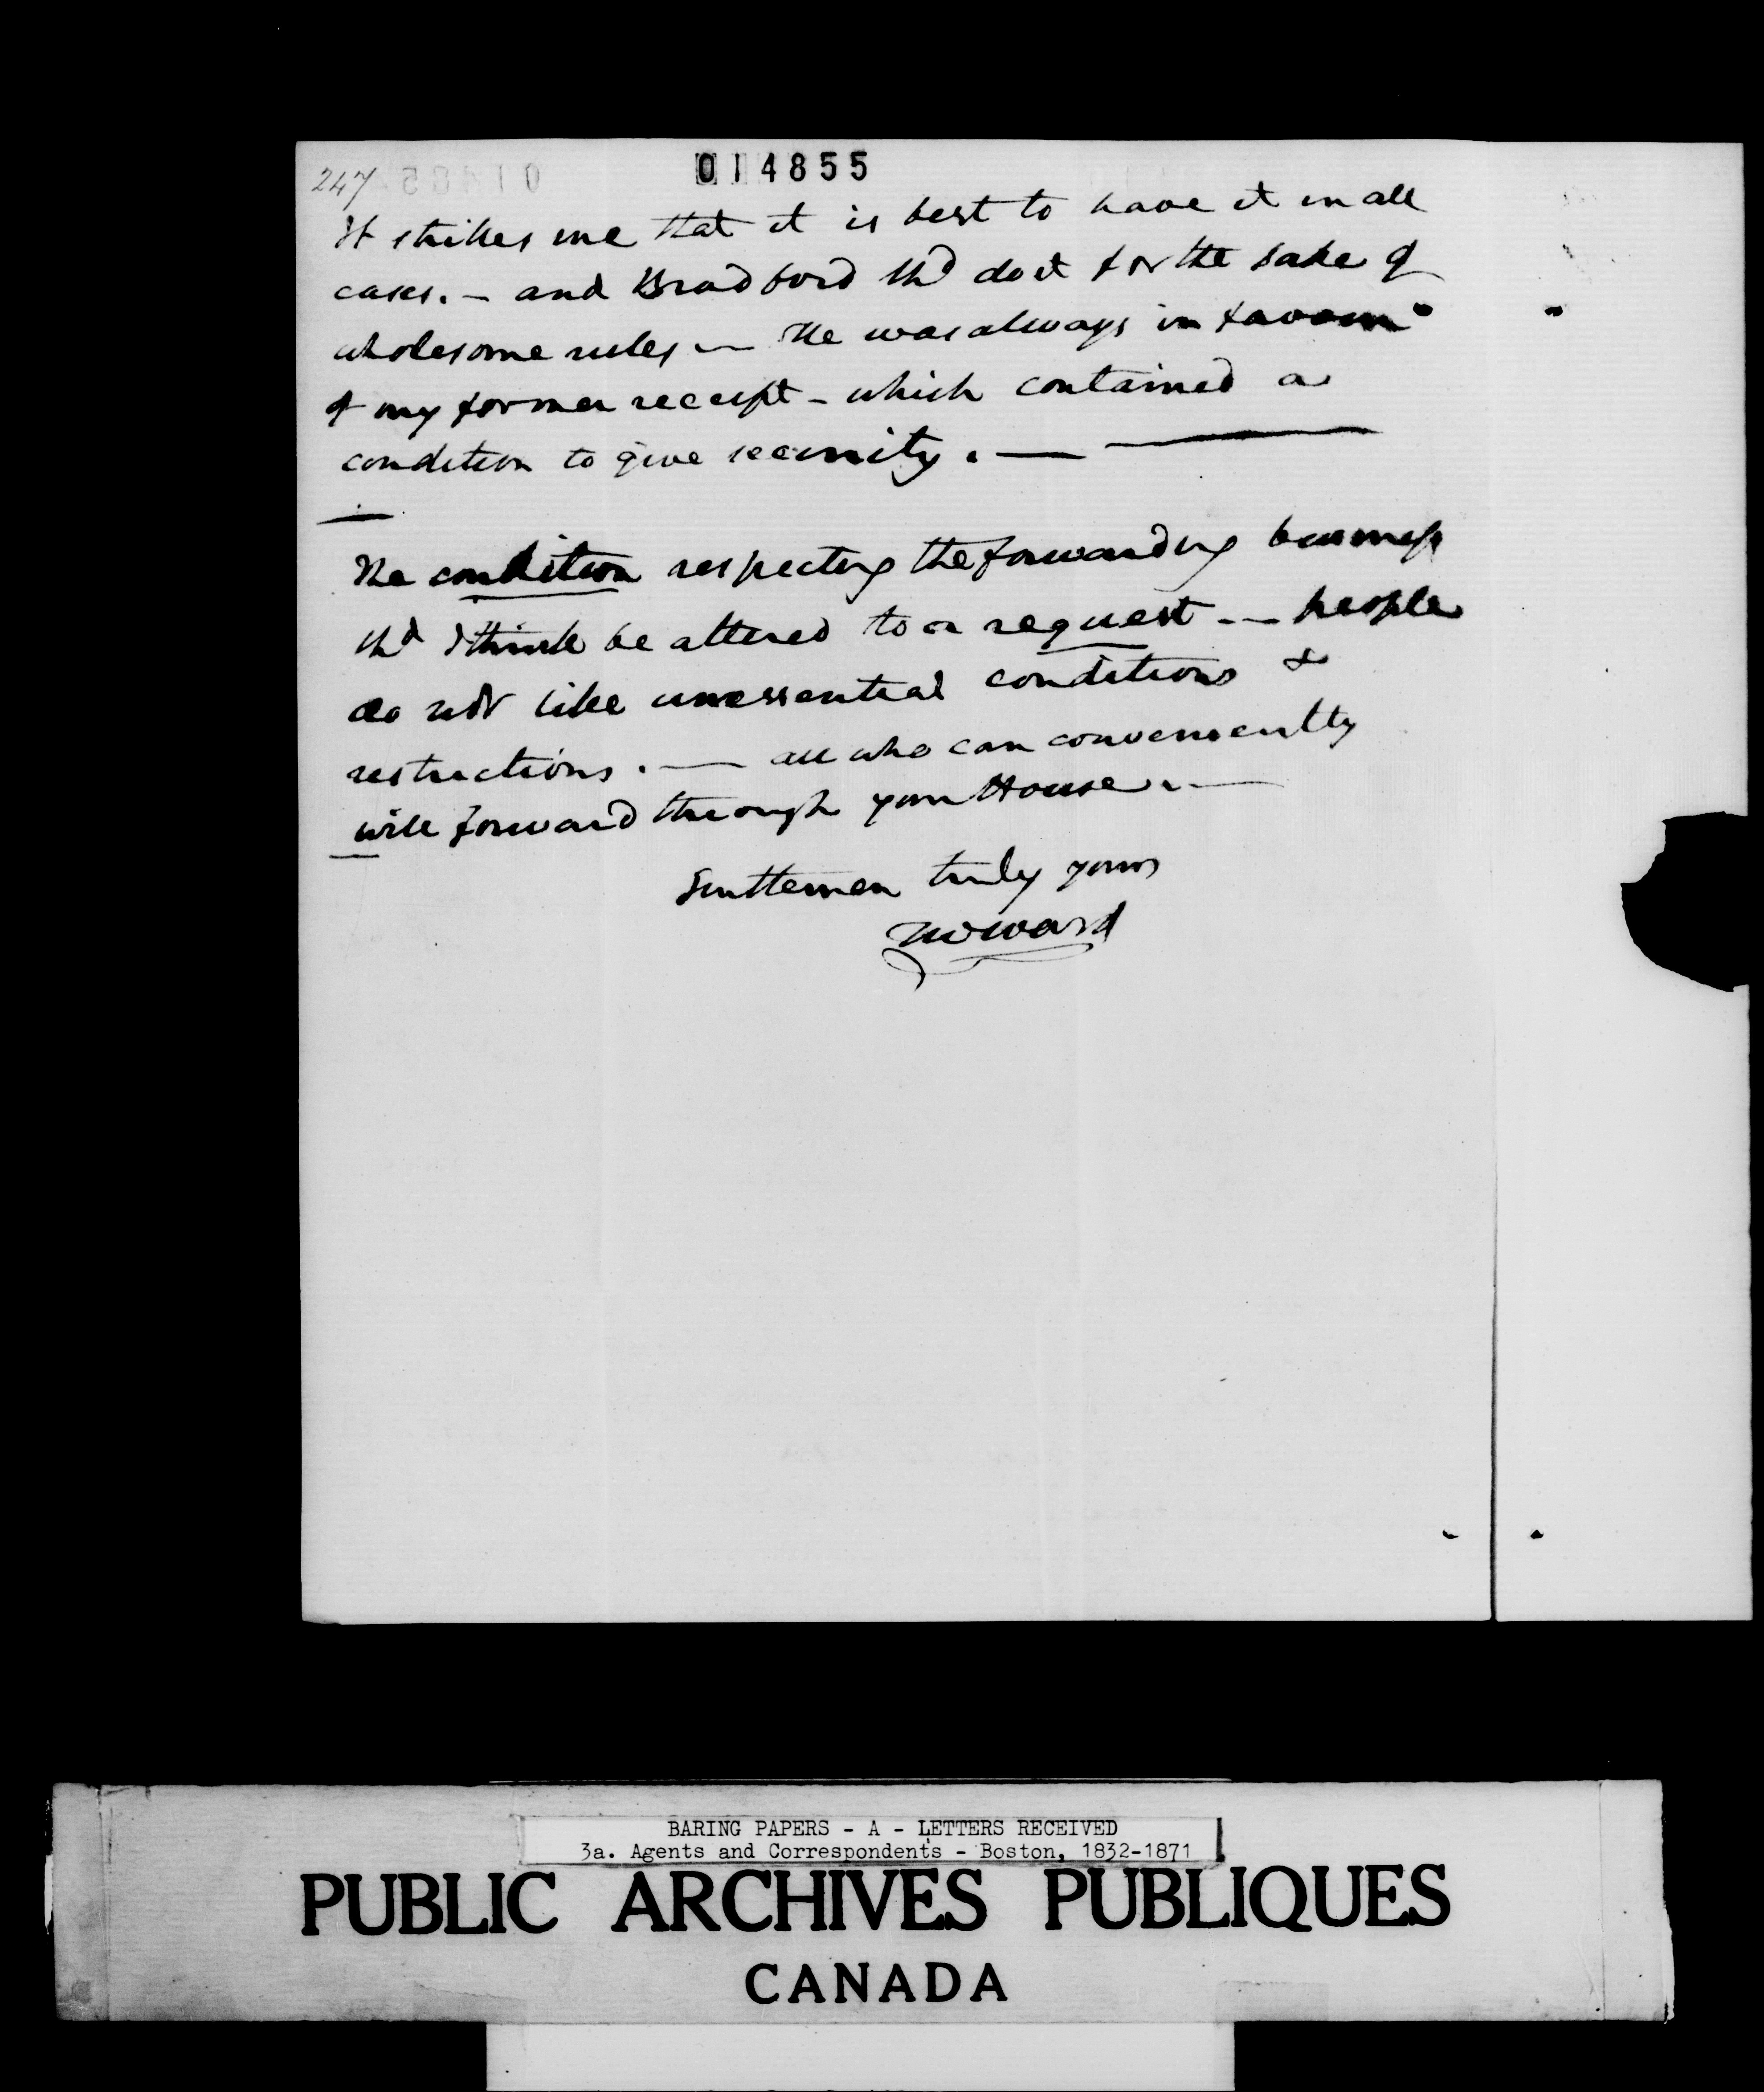 247
014855
It strikes me that it is best to have it in all
cases. – and Bradford shd do it for the sake of
wholesome rules — He was always in favour
of my former receipt – which contained a
condition to give security. —
The condition respecting the forwarding business
shd I think be altered to a request -- people
do not like unessential conditions &
restrictions. — all who can conveniently
will forward through your House. —
Gentlemen truly yours
TWWard
BARING PAPERS - A - LETTERS RECEIVED
3a. Agents and Correspondents - Boston, 1832-1871
PUBLIC ARCHIVES PUBLIQUES
CANADA